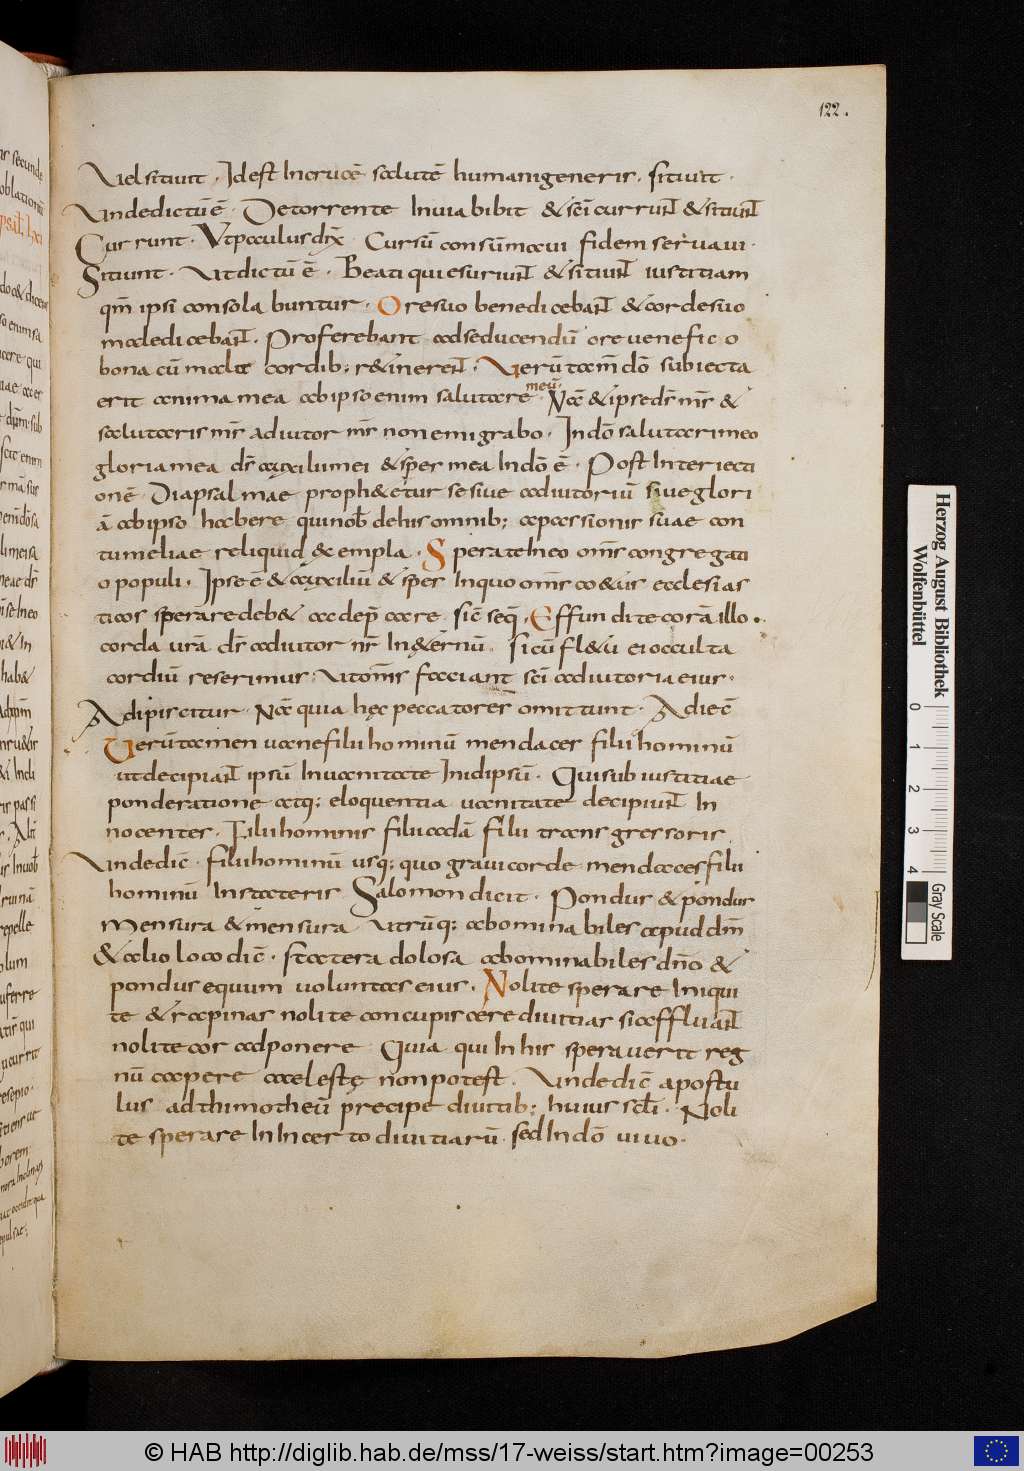 122.
Uel sitiuit · Id est In cruce salutē humani generis · sitiuit ·
Unde dictū ē · De torrente In uia bibit & sc̄i currunt & sitiunt
Currunt · Ut paulus dix̄ Cursū consūmaui fidem seruaui ·
Sitiunt · Ut dictū ē · Beati qui esuriunt & sitiunt iustitiam
qm̄ ipsi consolabuntur · Ore suo benedicebant & corde suo
maledicebant · Proferebant ad seducendū ore uenefico
bona cū mala cordib; r&inerent · Uerū tam̄ dō subiecta
erit anima mea ab ipso enim salutare meū · Nā & ipse ds̄ ms̄ &
salutaris ms̄ adiutor ms̄ non emigrabo · In dō salutari meo
gloria mea ds̄ auxilii mei & spes mea In dō ē · Post Interiecti
onē Diapsalmae proph&etur se siue adiutoriū siue glori
ā ab ipso habere qui nob̄ de his omnib; a passionis suae con
tumeliae reliquid exempla · Sperate In eo om̄s congregati
o populi · Ipse ē & auxiliū & spes In quo om̄s coetus ecclesias
ticos sperare deb& ac dep̄care sic̄ seq̄ · Effundite corā illo ·
corda ur̄a ds̄ adiutor nr̄ In &ernū · Si cū fl&u ei occulta
cordiū reserimus · Ut om̄s faciant sc̄i adiutoria eius ·
Adipiscitur · Nā quia hęc peccatores omittunt · Adiec̄
Uerūtamen uane filii hominū mendaces filii hominū
ut decipiant ipsū In uanitate In idipsū · Qui sub iustitiae
ponderatione atq; eloquentia uanitate decipiunt In
nocentes · Filii hominis filii adā filii transgressoris
Unde dic̄ · filii hominū usq; quo graui corde mendaces filii
hominū In stateris Salomon dicit · Pondus & pondus
Mensura & mensura utrūq; abominabiles apud dm̄
& alio loco dic̄ · statera dolosa abominabiles dn̄o &
pondus equum uoluntas eius · Nolite sperare In iniqui
te & rapinas nolite concupiscere diuitias si affluant
nolite cor adponere Quia qui In his sperauerit reg
nū capere caelestę non potest · Unde dic̄ apostu
lus ad thimotheū precipe diuitib; huius scl̄i · Noli
te sperare In Incerto diuitiarū · sed In dō uiuo ·
Herzog August Bibliothek
Wolfenbüttel
0 1 2 3 4
Gray Scale
© HAB http://diglib.hab.de/mss/17-weiss/start.htm?image=00253